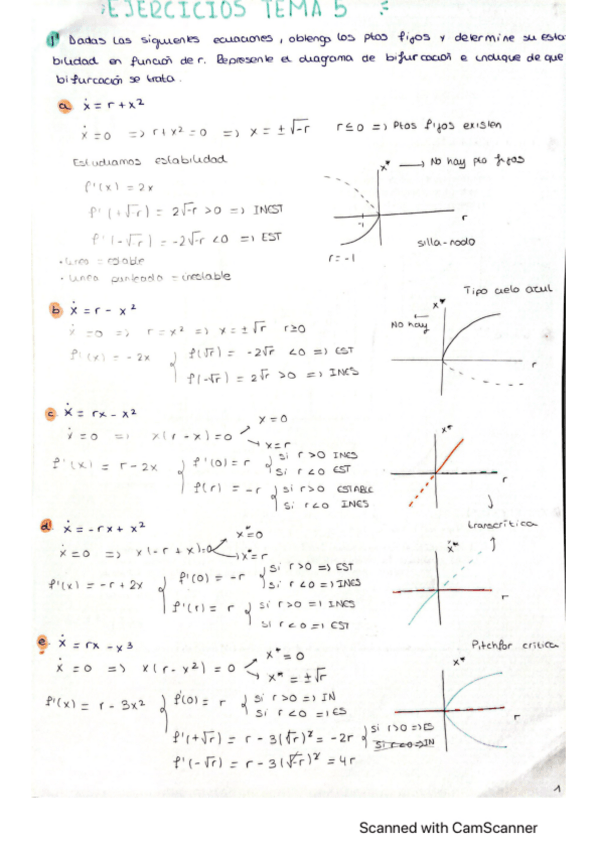 EJERCICIOS TEMA 5
1) Dadas las siguientes ecuaciones, obtenga los ptos fijos y determine su esta
bilidad en función de r. Represente el diagrama de bifurcación e indique de que
bifurcación se trata.
a. ẋ = r + x²
ẋ = 0 => r + x² = 0 => x = ± √-r r ≤ 0 => Ptos fijos existen
Estudiamos estabilidad
x* → No hay pto fijos
f'(x) = 2x
f'(+√-r) = 2√-r > 0 => INEST
-1 r
f'(-√-r) = -2√-r < 0 => EST
silla-nodo
· Linea = estable
r = -1
· Linea punteada = inestable
Tipo cielo azul
b. ẋ = r - x²
x*
No hay
ẋ = 0 => r = x² => x = ± √r r ≥ 0
f'(x) = -2x { f(√r) = -2√r < 0 => EST
r
f(-√r) = 2√r > 0 => INES
c. ẋ = rx - x²
x = 0
x*
ẋ = 0 => x(r - x) = 0
x = r
f'(x) = r - 2x { f'(0) = r { Si r > 0 INES
Si r < 0 EST
r
f(r) = -r { Si r > 0 ESTABLE
Si r < 0 INES
transcrítica
d. ẋ = -rx + x²
x* = 0
ẋ = 0 => x(-r + x) = 0
x* = r
x*
f'(x) = -r + 2x { f'(0) = -r { Si r > 0 => EST
Si r < 0 => INES
r
f'(r) = r { Si r > 0 => INES
Si r < 0 => EST
e. ẋ = rx - x³
Pitchfor critica
x* = 0
x*
ẋ = 0 => x(r - x²) = 0
x* = ± √r
f'(x) = r - 3x² { f'(0) = r { Si r > 0 => IN
Si r < 0 => ES
r
f'(+√r) = r - 3(√r)² = -2r { Si r > 0 => ES
Si r < 0 => IN
f'(-√r) = r - 3(√-r)² = 4r
1
Scanned with CamScanner